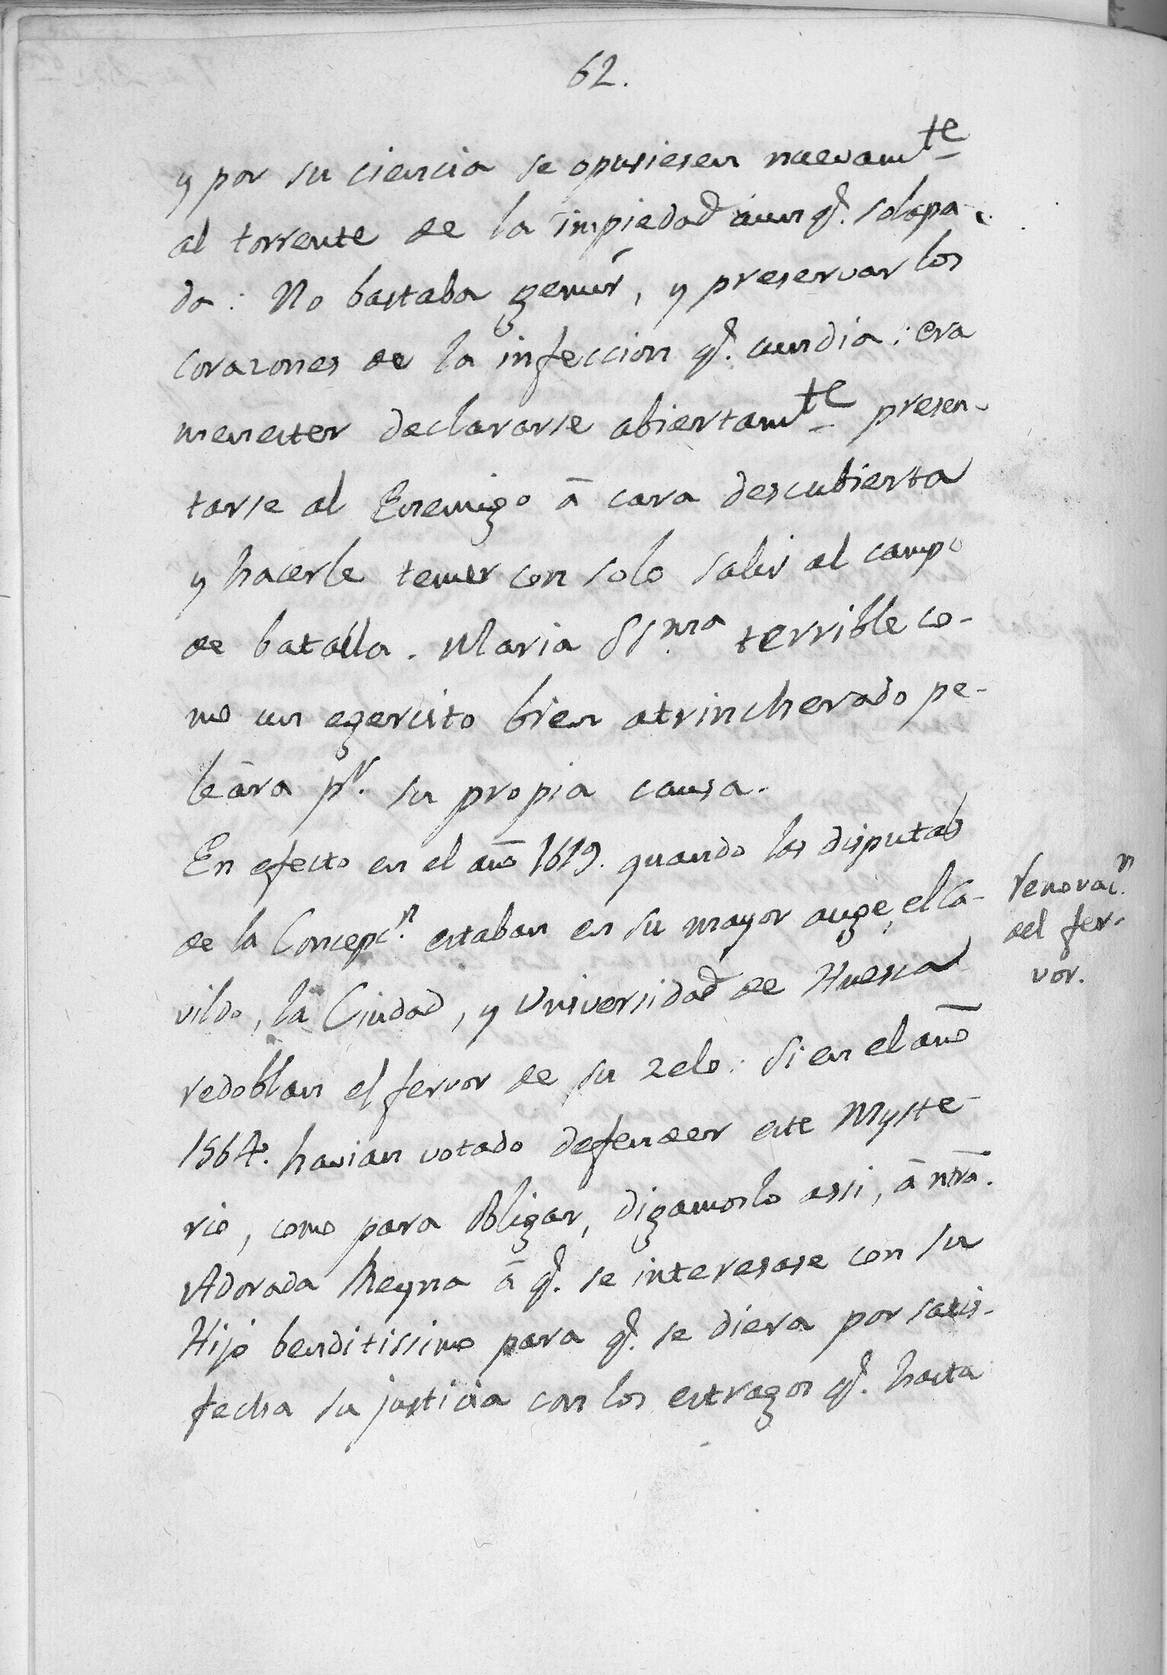 62.
y por su ciencia se opusiesen nuevamte
al torrente de la impiedad aunq. solapa-
da: No bastaba gemir, y preservar los
corazones de la infeccion q. cundia: era
menester declararse abiertamte presen-
tarse al Enemigo â cara descubierta
y hacerle temer con solo salir al campo
de batalla. Maria SSma terrible co-
mo un egercito bien atrincherado pe-
leâra pr. su propia causa.
En efecto en el año 1619. quando las disputas
de la Concepcn. estaban en su mayor auge, el Ca-
vildo, la Ciudad, y Universidad de Huesca
redoblan el fervor de su zelo: Si en el año
1564. havian votado defender este Myste-
rio, como para obligar, digamoslo assi, â ntra.
Adorada Reyna â q. se interesase con su
Hijo benditissimo para q. se diera por satis-
fecha su justicia con los estragos q. hasta
renovacn.
del fer-
vor.